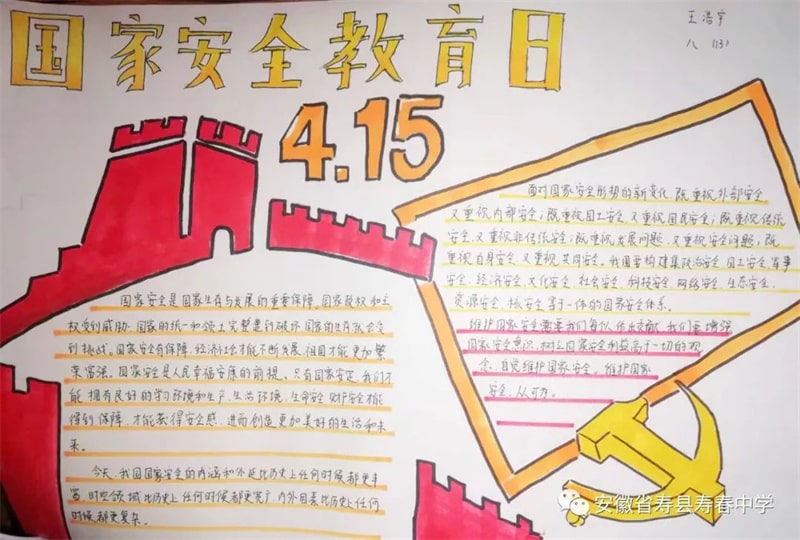 国家安全教育日
王浩宇
八（13）
4.15
国家安全是国家生存与发展的重要保障。国家政权和主
权受到威胁，国家的统一和领土完整遭到破坏，国家的生存就会受
到挑战。国家安全有保障，经济社会才能不断发展，祖国才能更加繁
荣富强。国家安全是人民幸福安康的前提。只有国家安定，我们才
能拥有良好的学习环境和生产、生活环境，生命安全、财产安全才能
得到保障，才能获得安全感，进而创造更加美好的生活和未
来。
今天，我国国家安全的内涵和外延比历史上任何时候都更丰
富，时空领域比历史上任何时候都更宽广，内外因素比历史上任何
时候都更复杂。
面对国家安全形势的新变化，既重视外部安全，
又重视内部安全；既重视国土安全，又重视国民安全；既重视传统
安全，又重视非传统安全；既重视发展问题，又重视安全问题；既
重视自身安全，又重视共同安全。我国要构建集政治安全、国土安全、军事
安全、经济安全、文化安全、社会安全、科技安全、网络安全、生态安全、
资源安全、核安全等于一体的国家安全体系。
维护国家安全需要我们每个人作出贡献，我们要增强
国家安全意识，树立国家安全利益高于一切的观
念，自觉维护国家安全。维护国家
安全，人人可为。
安徽省寿县寿春中学